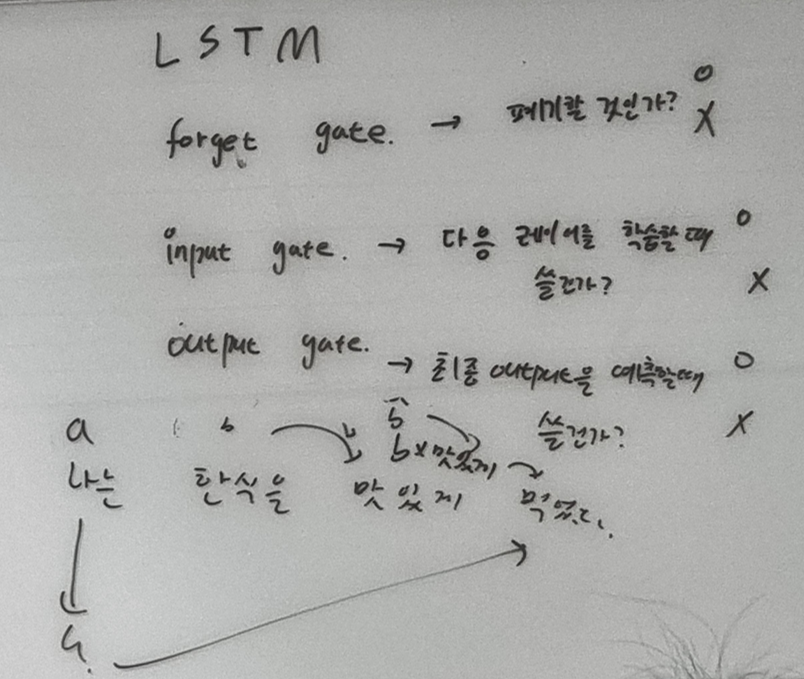 LSTM
forget gate. → 폐기할 것인가? O X
input gate. → 다음 레이어를 학습할때 O
쓸건가? X
output gate.
→ 최종 output을 예측할때 O
쓸건가? X
a b b
b×맛있게
나는 한식을 맛있게 먹었다.